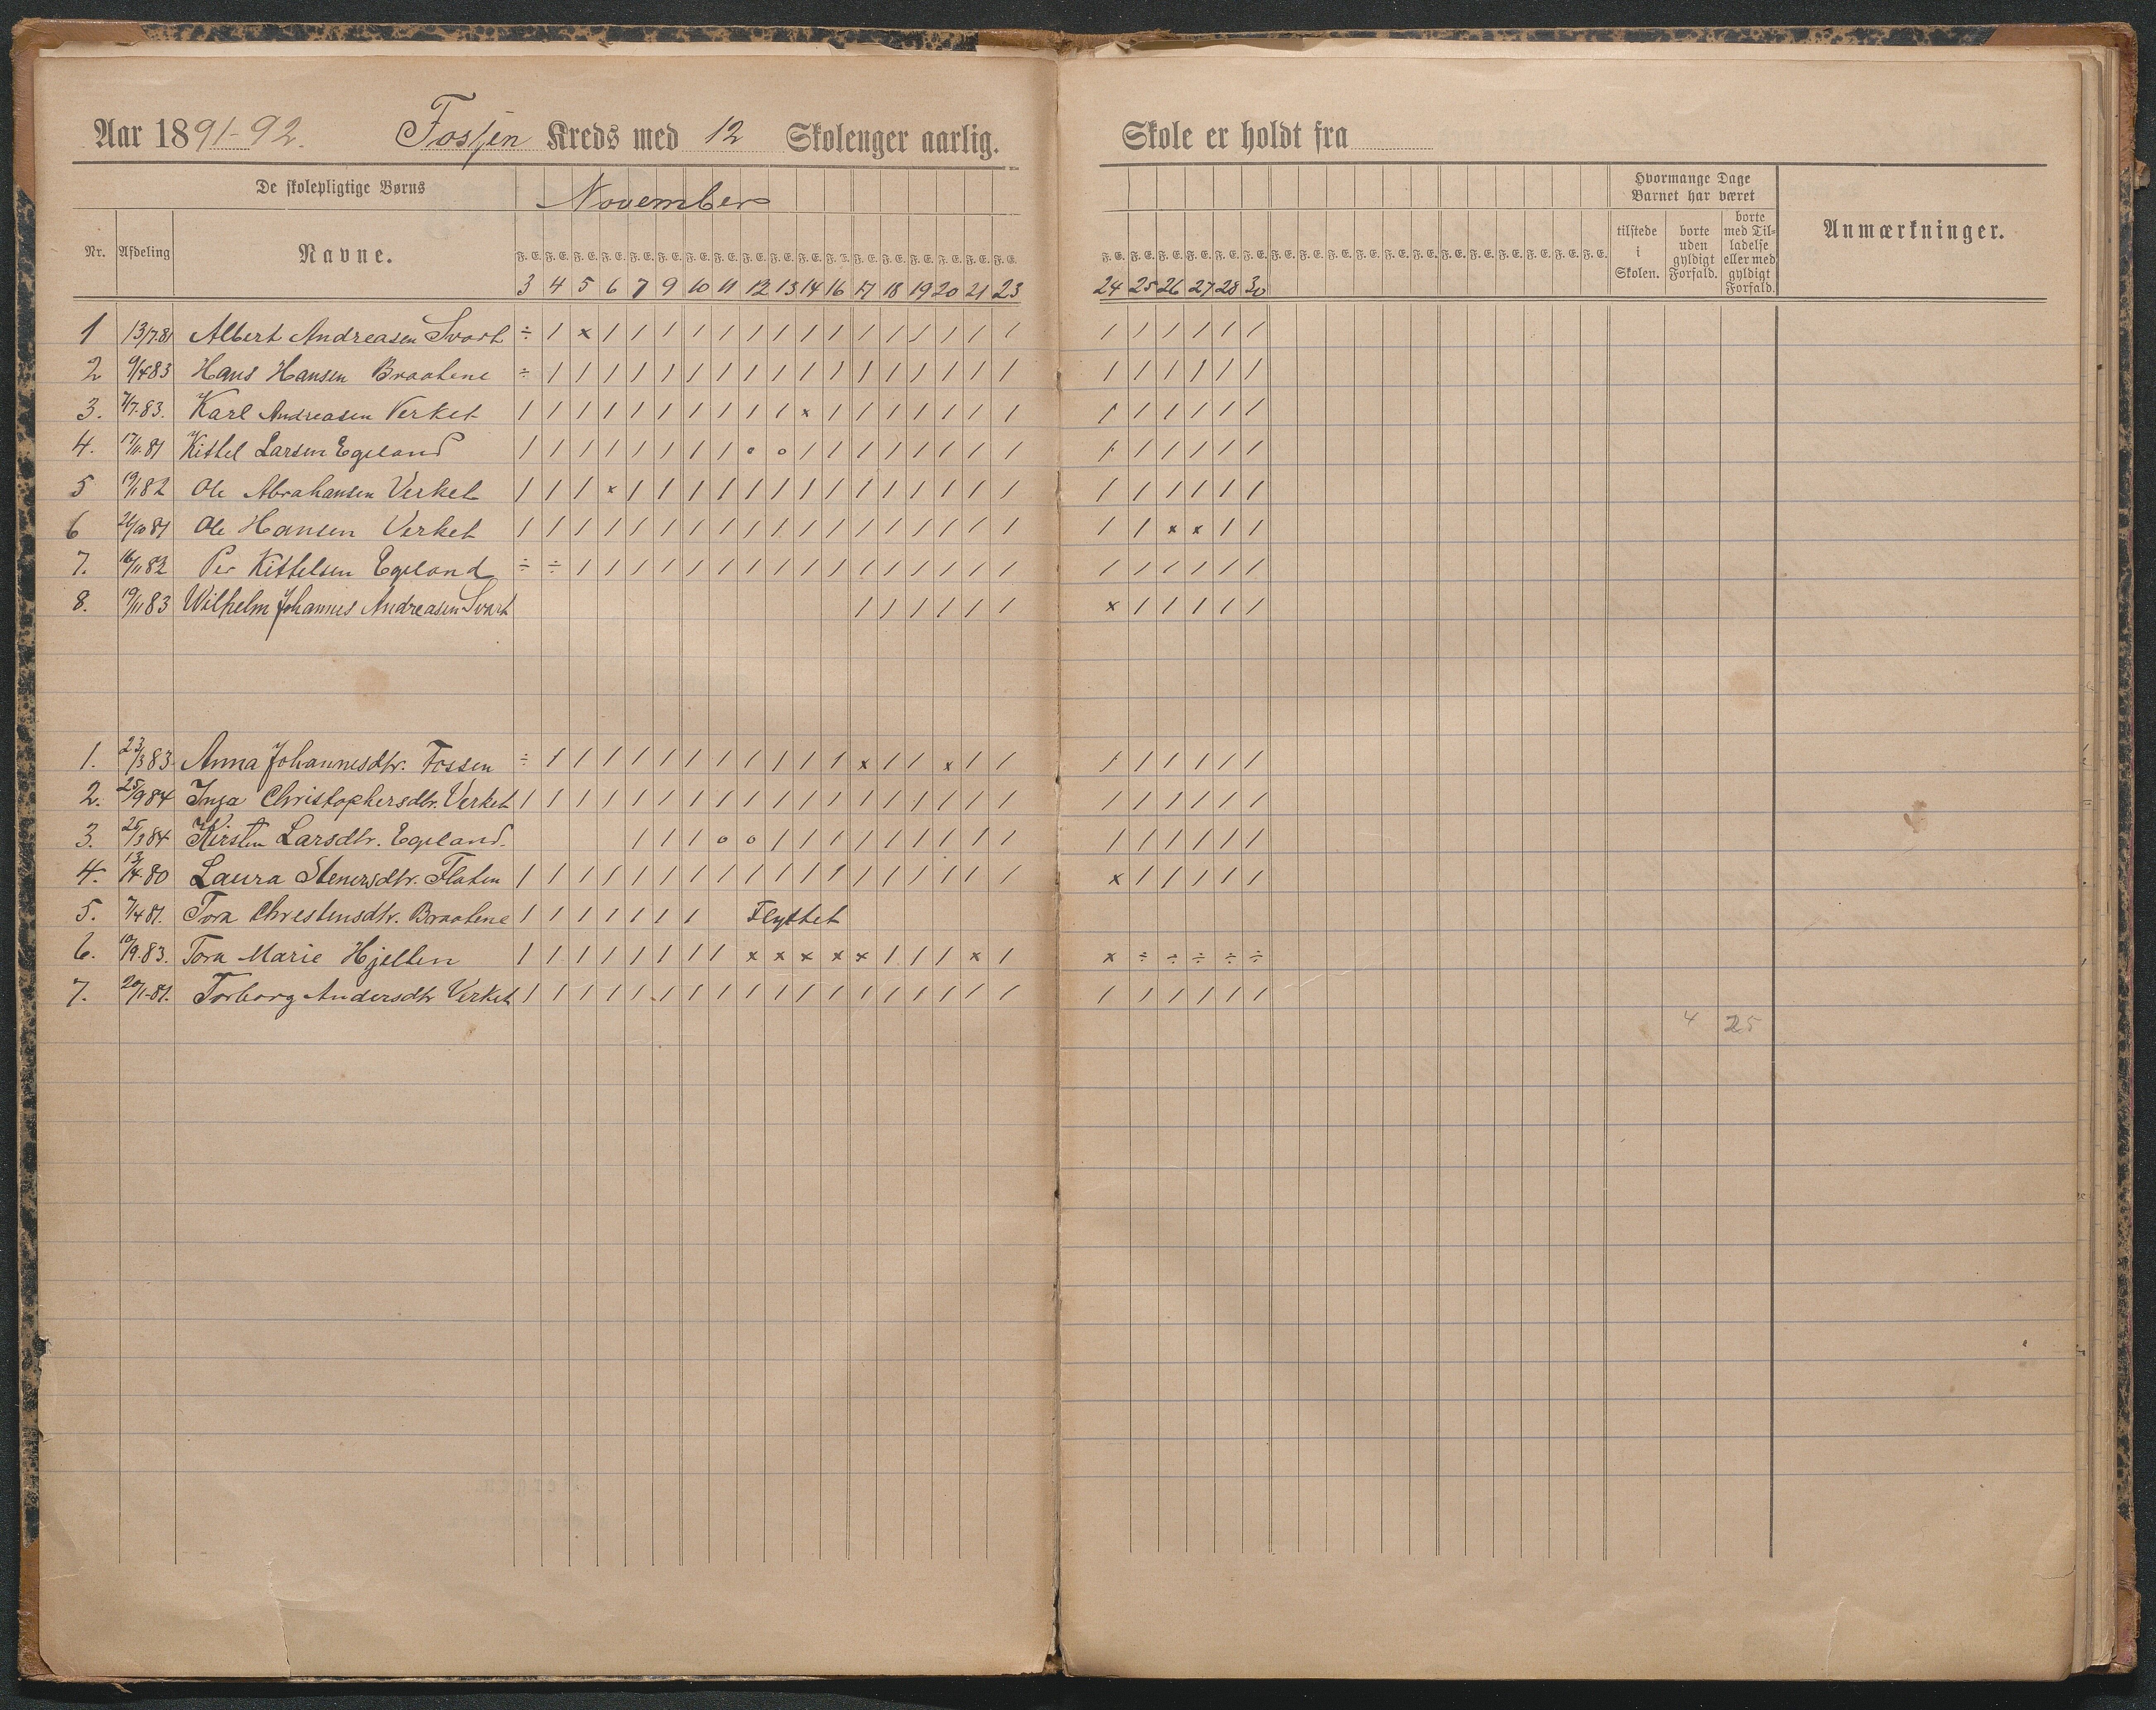 Aar 1891-92. Fossen Kreds med 12 Skolenger aarlig. Skole er holdt fra
De skolepligtige Børns
November
Hvormange Dage Barnet har været
Nr. Afdeling Navne.
F. E. F. E. F. E. F. E. F. E. F. E. F. E. F. E. F. E. F. E. F. E. F. E. F. E. F. E. F. E. F. E. F. E. F. E.
F. E. F. E. F. E. F. E. F. E. F. E. F. E. F. E. F. E. F. E. F. E. F. E. F. E. F. E. F. E. F. E. F. E. F. E.
tilstede i Skolen.
borte uden gyldigt Forfald.
borte med Tilladelse eller med gyldigt Forfald.
Anmærkninger.
3 4 5 6 7 9 10 11 12 13 14 16 17 18 19 20 21 23 24 25 26 27 28 30
1 13/7.81 Albert Andreasen Svart ÷ / x / / / / / / / / / / / / / / / / / / / / /
2 9/4 83 Hans Hansen Braatene ÷ / / / / / / / / / / / / / / / / / / / / / / /
3. 7/7.83. Karl Andreasen Verket / / / / / / / / / / x / / / / / / / / / / / / /
4. 17/11.81 Kittel Larsen Egeland / / / / / / / / o o / / / / / / / / / / / / / /
5 19/1 82 Ole Abrahamsen Verket / / / x / / / / / / / / / / / / / / / / / / / /
6 26/10 81 Ole Hansen Verket / / / / / / / / / / / / / / / / / / / / x x / /
7. 16/11 82 Per Kittelsen Egeland ÷ ÷ / / / / / / / / / / / / / / / / / / / / / /
8. 19/11 83 Wilhelm Johannes Andreasen Svart / / / / / / x / / / / /
1. 23/3 83. Anna Johannesdtr. Fossen ÷ / / / / / / / / / / / x / / x / / / / / / / /
2. 25/9 84 Inga Christophersdtr. Verket / / / / / / / / / / / / / / / / / / / / / / / /
3. 25/3 84 Kirsten Larsdtr. Egeland. / / / o o / / / / / / / / / / / / / / /
4. 13/4.80 Laura Stenersdtr. Flaten / / / / / / / / / / / / / / / / / / x / / / / /
5. 7/4 81. Tora Christensdtr. Braatene / / / / / / / Flyttet
6. 10/9.83. Tora Marie Hjelten / / / / / / / / x x x x x / / / x / x ÷ ÷ ÷ ÷ ÷
7. 20/1-81. Torborg Andersdtr Verket / / / / / / / / / / / / / / / / / / / / / / / /
4 25